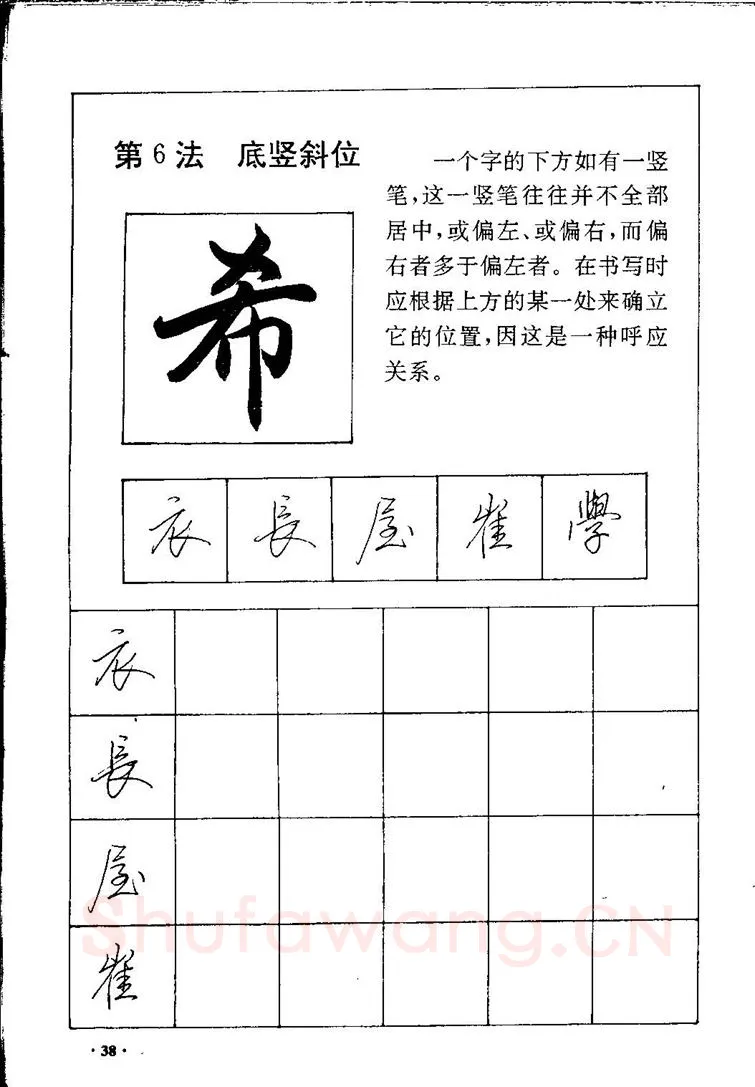 第6法 底竖斜位
一个字的下方如有一竖
笔,这一竖笔往往并不全部
居中,或偏左、或偏右,而偏
右者多于偏左者。在书写时
应根据上方的某一处来确立
它的位置,因这是一种呼应
关系。
希
衣 長 屋 崔 學
衣
長
屋
崔
Shufawang.CN
·38·